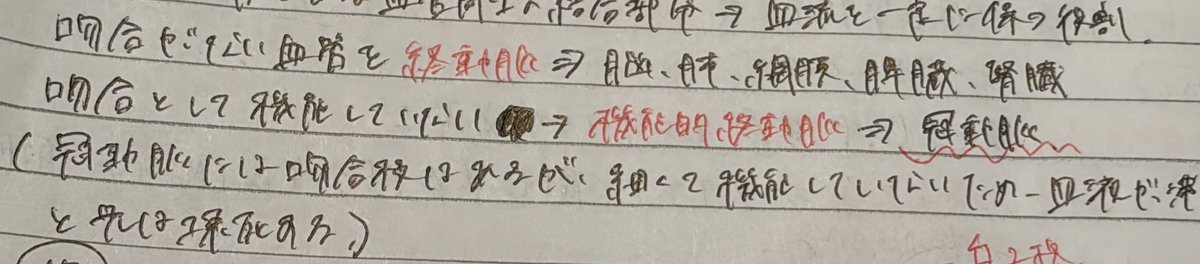 血管同士の結合部分 → 血流を一定に保つ役割
吻合がない血管を終動脈 ⇒ 脳、肺、網膜、脾臓、腎臓
吻合として機能していない → 機能的終動脈 ⇒ 冠動脈
(冠動脈には吻合枝はあるが、細くて機能していないため血液が